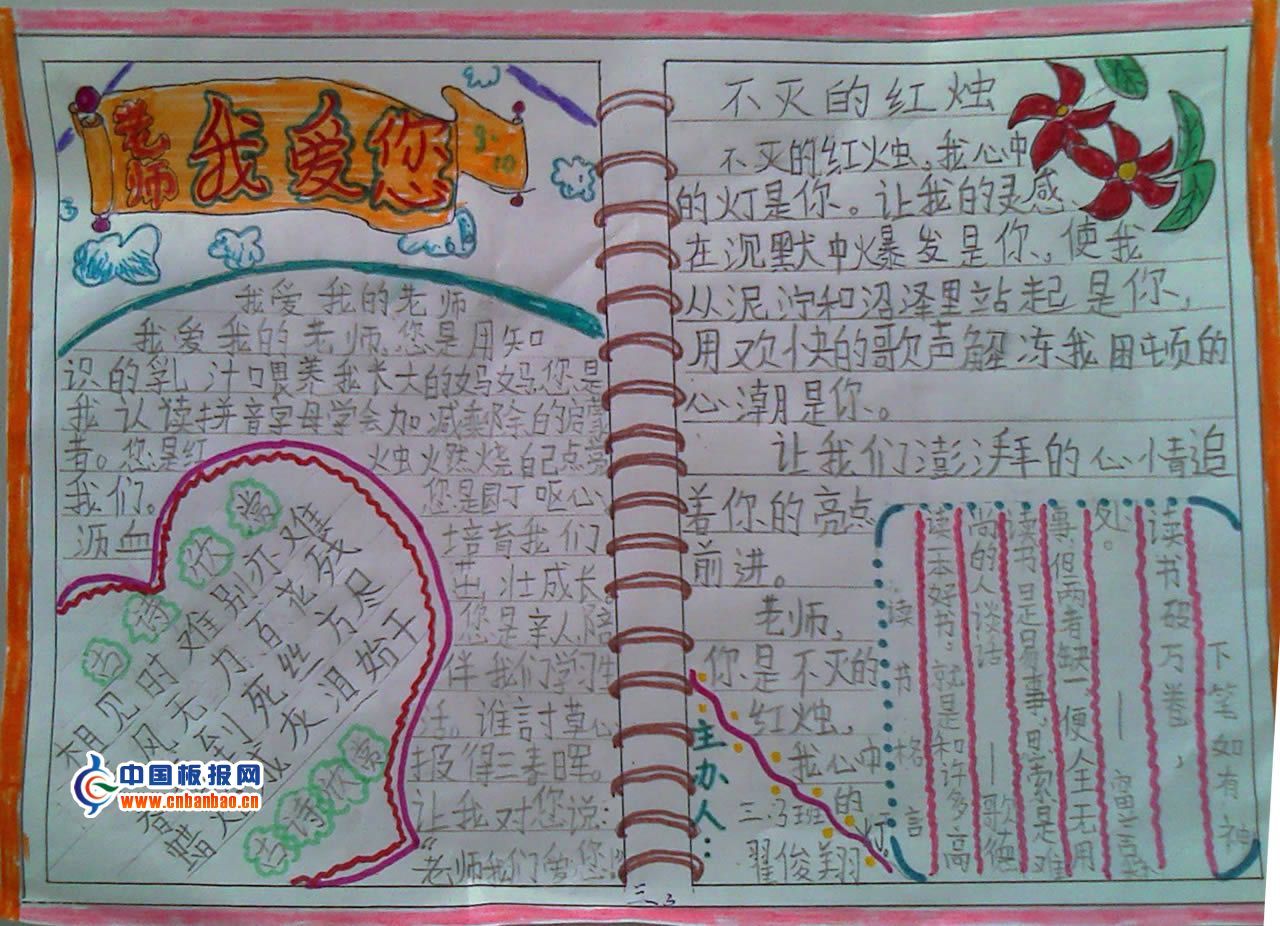 老师
我爱您
9.10
我爱我的老师
我爱我的老师,您是用知
识的乳汁喂养我长大的妈妈,您是
我认读拼音字母学会加减乘除的启蒙
者。您是红
烛火燃烧自己点亮
我们。
您是园丁呕心
沥血
培育我们
茁壮成长。
您是亲人陪
伴我们学习生
活。谁討草心
报得三春晖。
让我对您说:
“老师我们爱您!”
古诗欣赏
相见时难别亦难
风无力百花残
到死丝方尽
蜡 灰泪始干
古诗欣赏
中国板报网
www.cnbanbao.cn
不灭的红烛
不灭的红烛,我心中
的灯是你。让我的灵感、
在沉默中爆发是你,使我
从泥泞和沼泽里站起是你,
用欢快的歌声解冻我困顿的
心潮是你。
让我们澎湃的心情追
着你的亮点
前进。
老师,
你是不灭的
红烛,
我心中
的
灯。
主办人:
三.3班
翟俊翔
读书格言
读一本好书,就是和许多高
尚的人谈话 ——歌德
读书是易事,思索是难
事,但两者缺一,便全无用
处。 ——富兰克林
读书破万卷,
下笔如有神
三、3